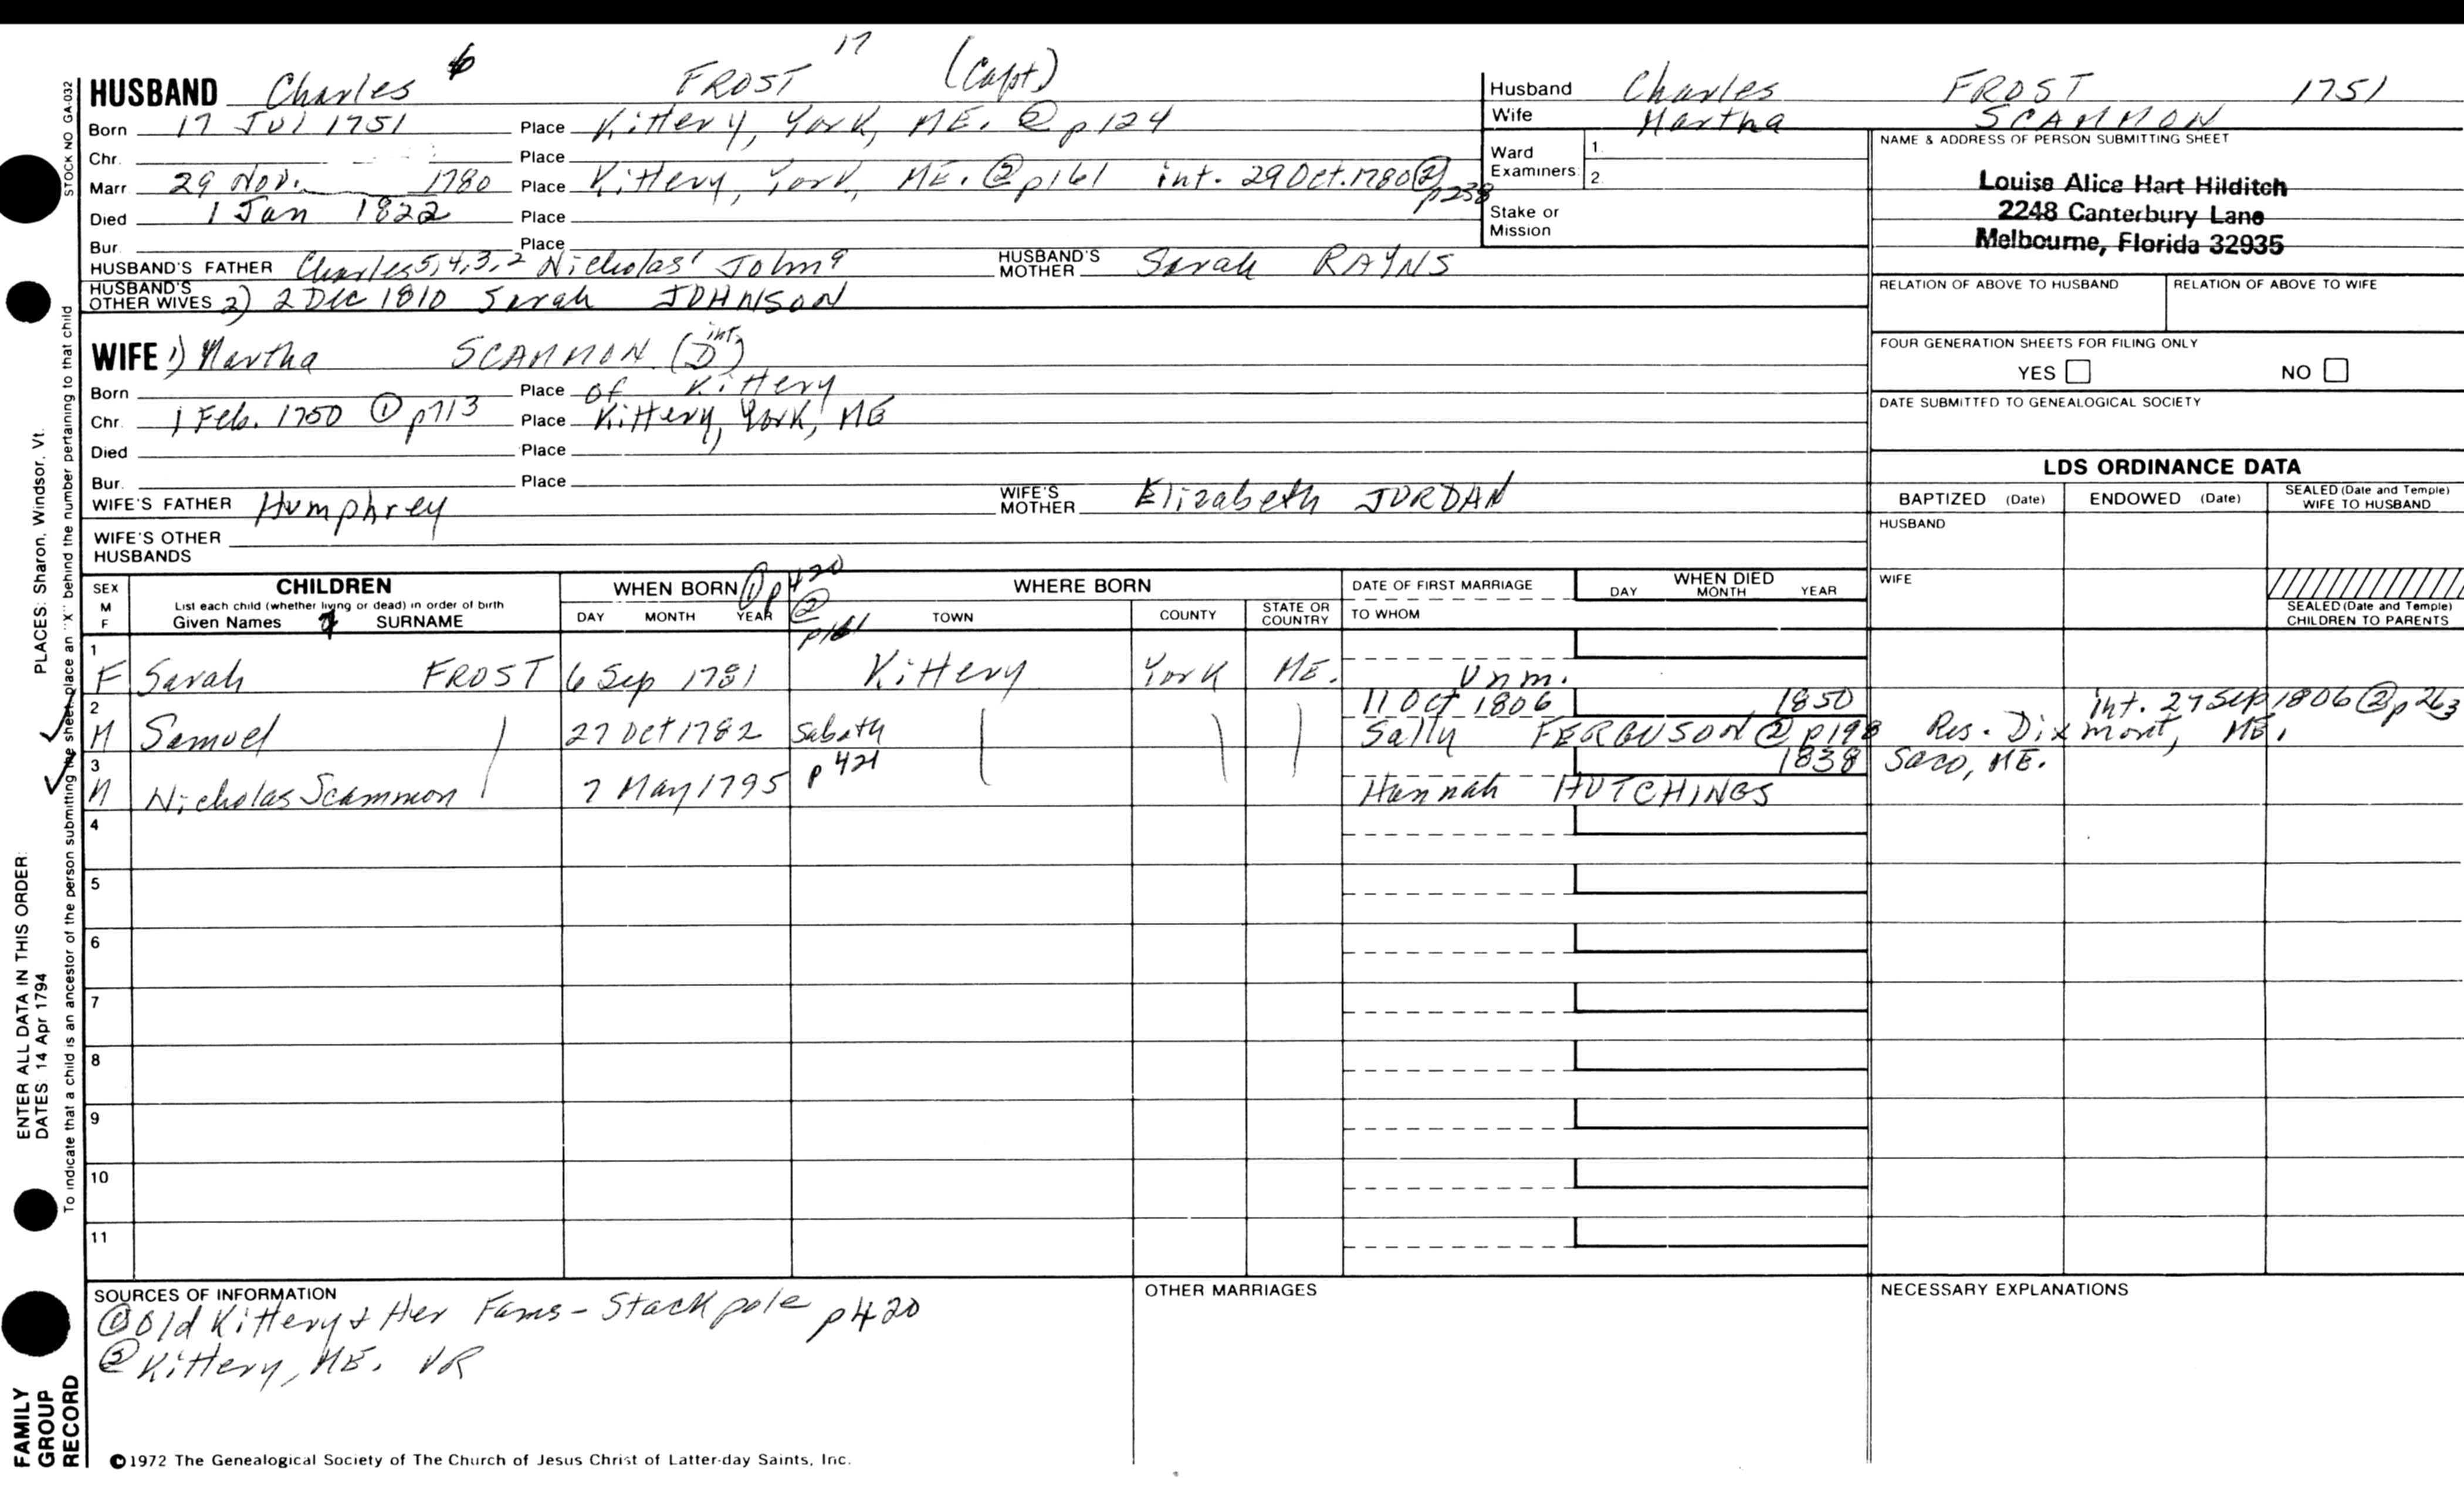 17
HUSBAND Charles 6 FROST (Capt)
Born 17 Jul 1751 Place Kittery, York, ME. ② p124
Chr. Place
Marr. 29 Nov. 1780 Place Kittery, York, ME. ② p161 int. 29 Oct. 1780 ② p238
Died 1 Jan 1822 Place
Bur. Place
HUSBAND'S FATHER Charles 5,4,3,2 Nicholas 1 John 9 HUSBAND'S MOTHER Sarah RAYNS
HUSBAND'S OTHER WIVES 2) 2 Dec 1810 Sarah JOHNSON
WIFE 1) Martha SCAMMON (D int.)
Born Place of Kittery
Chr. 1 Feb. 1750 ① p713 Place Kittery, York, ME
Died Place
Bur. Place
WIFE'S FATHER Humphrey WIFE'S MOTHER Elizabeth JORDAN
WIFE'S OTHER HUSBANDS
Husband Charles FROST 1751
Wife Martha SCAMMON
Ward Examiners: 1. 2.
Stake or Mission
NAME & ADDRESS OF PERSON SUBMITTING SHEET
Louise Alice Hart Hilditch
2248 Canterbury Lane
Melbourne, Florida 32935
RELATION OF ABOVE TO HUSBAND RELATION OF ABOVE TO WIFE
FOUR GENERATION SHEETS FOR FILING ONLY
YES NO
DATE SUBMITTED TO GENEALOGICAL SOCIETY
LDS ORDINANCE DATA
BAPTIZED (Date) ENDOWED (Date) SEALED (Date and Temple) WIFE TO HUSBAND
HUSBAND
WIFE
SEALED (Date and Temple) CHILDREN TO PARENTS
SEX M F
CHILDREN
List each child (whether living or dead) in order of birth
Given Names SURNAME
WHEN BORN ① p420 ② p161
DAY MONTH YEAR
WHERE BORN
TOWN COUNTY STATE OR COUNTRY
DATE OF FIRST MARRIAGE
TO WHOM
WHEN DIED
DAY MONTH YEAR
1 F Sarah FROST 6 Sep 1781 Kittery York ME. Unm.
2 11 Oct 1806 1850 int. 27 Sep 1806 ② p263
M Samuel 27 Oct 1782 Sabath Sally FERGUSON ② p198 Res. Dixmont, ME.
3 p 421 1838 Saco, ME.
M Nicholas Scammon 7 May 1795 Hannah HUTCHINGS
4
5
6
7
8
9
10
11
SOURCES OF INFORMATION
① Old Kittery & Her Fams - Stackpole p420
② Kittery, ME. VR
OTHER MARRIAGES
NECESSARY EXPLANATIONS
©1972 The Genealogical Society of The Church of Jesus Christ of Latter-day Saints, Inc.
STOCK NO GA-032
To indicate that a child is an ancestor of the person submitting the sheet, place an "X" behind the number pertaining to that child
ENTER ALL DATA IN THIS ORDER:
PLACES: Sharon, Windsor, Vt.
DATES 14 Apr 1794
FAMILY
GROUP
RECORD